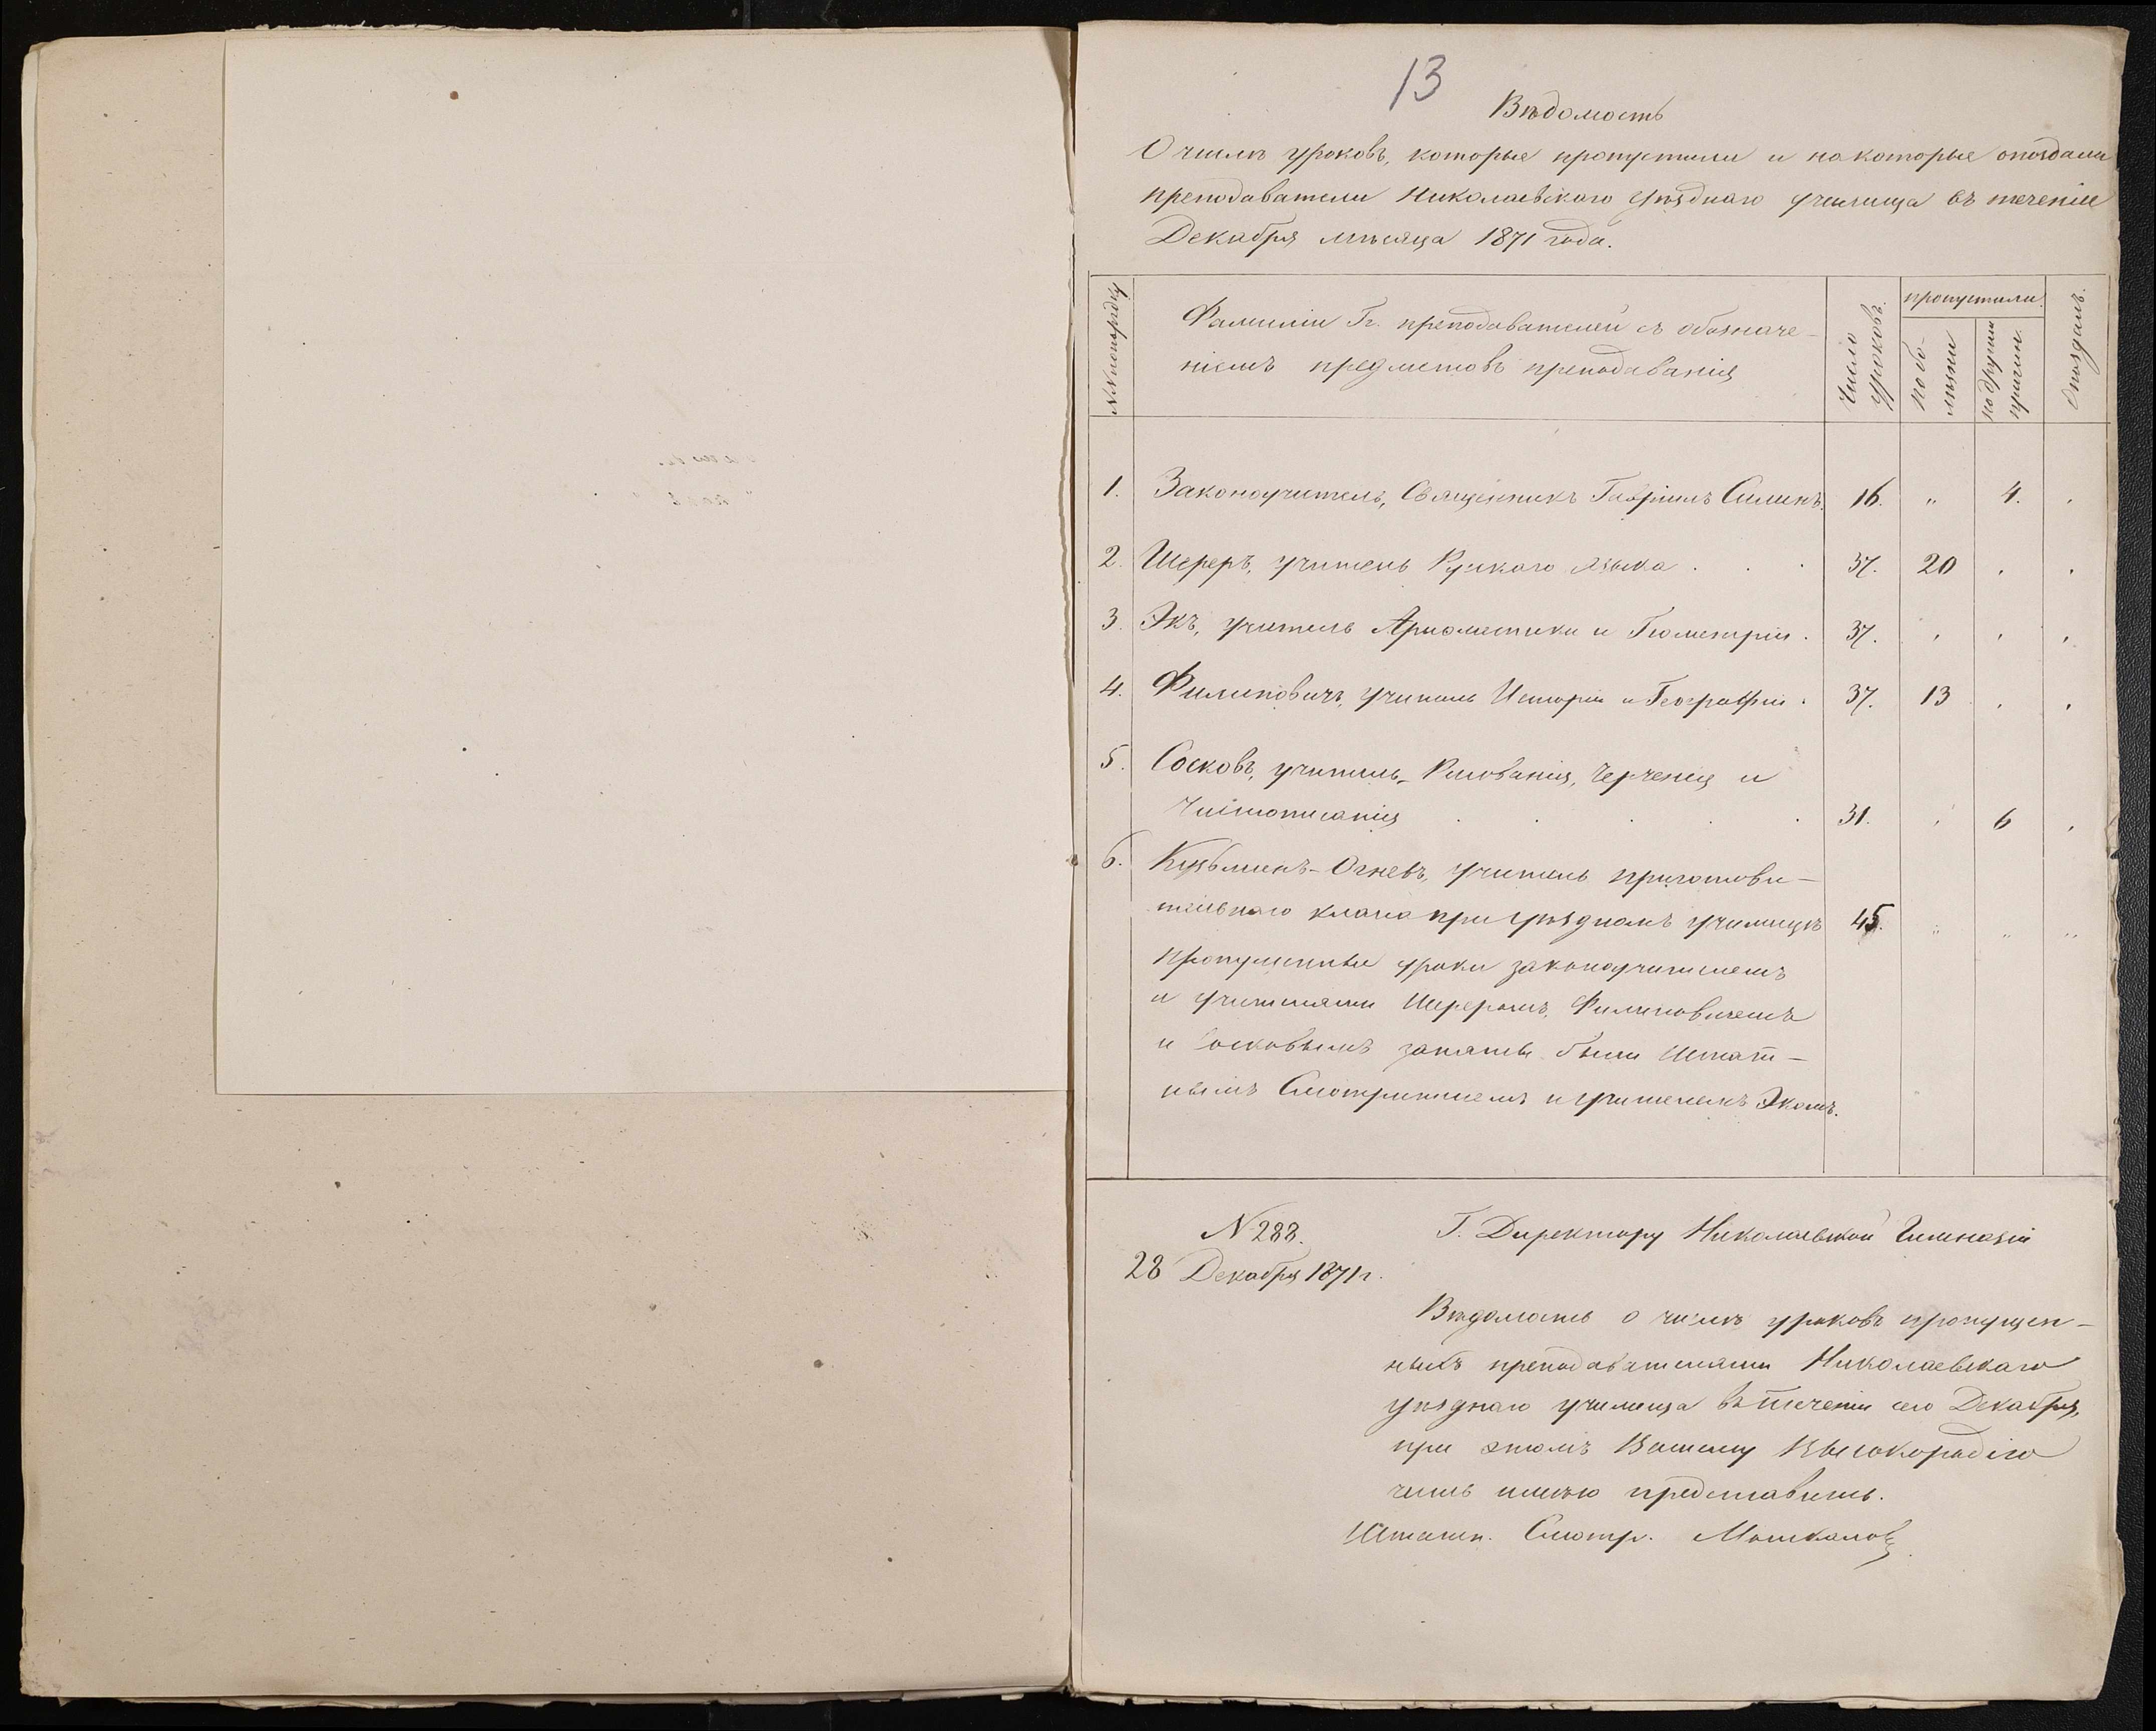 13
Вѣдомость
О числѣ уроковъ, которые пропустили и на которые опоздали
преподаватели Николаевскаго уѣзднаго училища въ теченіе
Декабря мѣсяца 1871 года.
№№ по порядку
Фамиліи Гг. преподавателей съ обозначе-
ніемъ предметовъ преподаванія
Число уроковъ.
пропустили.
по бо-
лѣзни
по другим
причин.
Опоздалъ.
1. Законоучитель, Священникъ Гавріилъ Силинъ. 16. „ 4. .
2. Шереръ, учитель Русскаго языка . . . 37. 20 . .
3. Экъ, учитель Ариѳметики и Геометріи . 37. . . .
4. Филиповичъ, учитель Исторіи и Географіи . 37. 13 . .
5. Сосковъ, учитель Рисованія, Черченія и
Чистописанія . . . . . 31. . 6 .
6. Кузьминъ-Огневъ, учитель приготови-
тельнаго класса при уѣздномъ училищѣ 45. „ „ „
Пропущенные уроки законоучителемъ
и учителями Шереромъ, Филиповичемъ
и Сосковымъ заняты были Штат-
нымъ Смотрителемъ и учителемъ Экомъ.
N 288.
28 Декабря 1871 г.
Г. Директору Николаевской Гимназіи
Вѣдомость о числѣ уроковъ пропущен-
ныхъ преподавателями Николаевскаго
уѣзднаго училища въ теченіи сего Декабря,
при этомъ Вашему Высокородію
честь имѣю представить.
Штатн. Смотр. Мошкалов